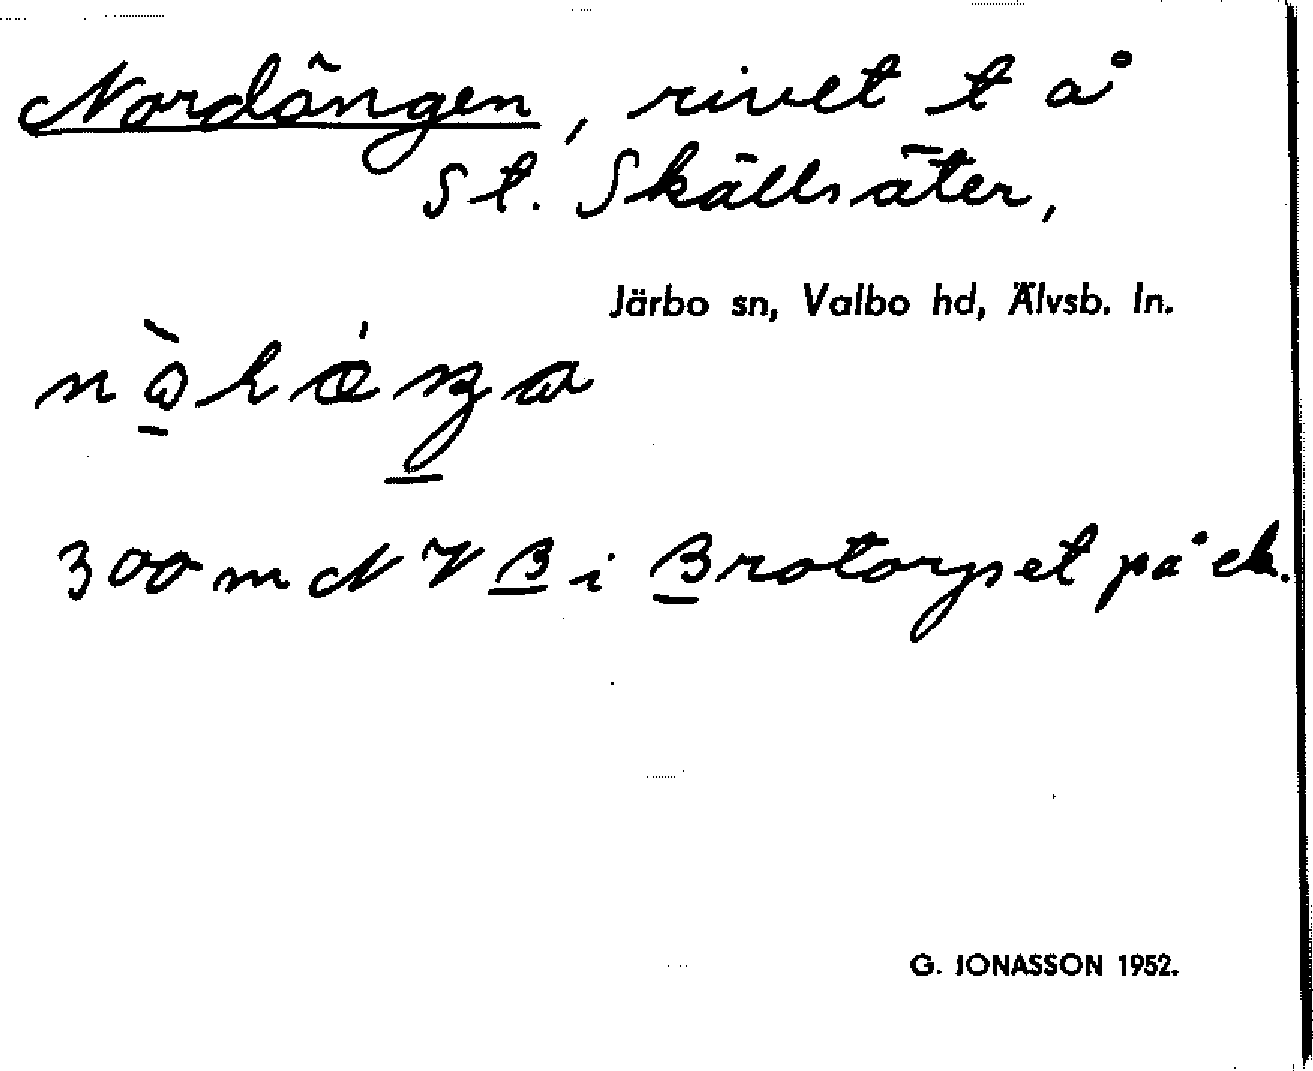 Nordängen, rivet t å
St. Skällsäter,
Järbo sn, Valbo hd, Älvsb. ln.
300 m NV B i Brotorpet på ek.
G. JONASSON 1952.